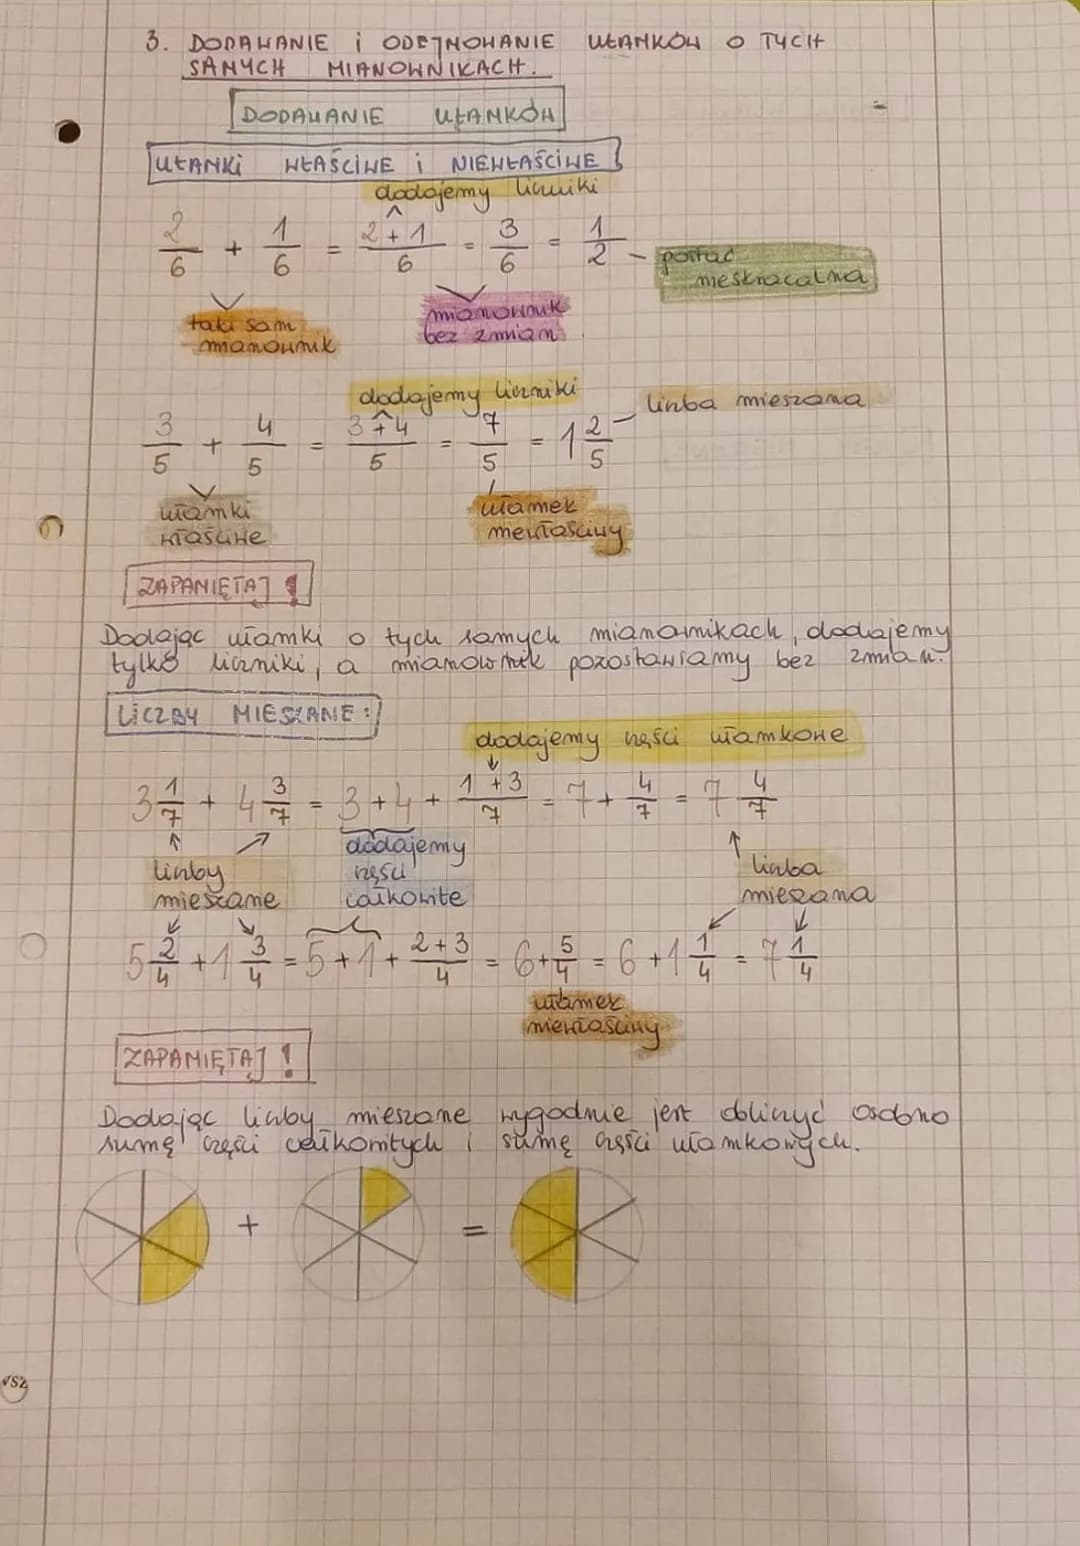 3. DODAWANIE i ODEJMOWANIE UŁAMKÓW O TYCH
SAMYCH MIANOWNIKACH.
DODAWANIE UŁAMKÓW
UŁAMKI WŁAŚCIWE i NIEWŁAŚCIWE
dodajemy liczniki
2/6 + 1/6 = 2+1/6 = 3/6 = 1/2 - postać
nieskracalna
taki sam
mianownik
mianownik
bez zmian
dodajemy liczniki
liczba mieszana
3/5 + 4/5 = 3+4/5 = 7/5 = 1 2/5
ułamki
właściwe
ułamek
niewłaściwy
ZAPAMIĘTAJ !
Dodając ułamki o tych samych mianownikach, dodajemy
tylko liczniki, a mianownik pozostawiamy bez zmian.
LICZBY MIESZANE:
dodajemy części ułamkowe
3 1/7 + 4 3/7 = 3+4+ 1+3/7 = 7+ 4/7 = 7 4/7
liczby
mieszane
dodajemy
części
całkowite
liczba
mieszana
5 2/4 + 1 3/4 = 5+1+ 2+3/4 = 6+ 5/4 = 6+1 1/4 = 7 1/4
ułamek
niewłaściwy
ZAPAMIĘTAJ !
Dodając liczby mieszane wygodnie jest obliczyć osobno
sumę części całkowitych i sumę części ułamkowych.
+ =